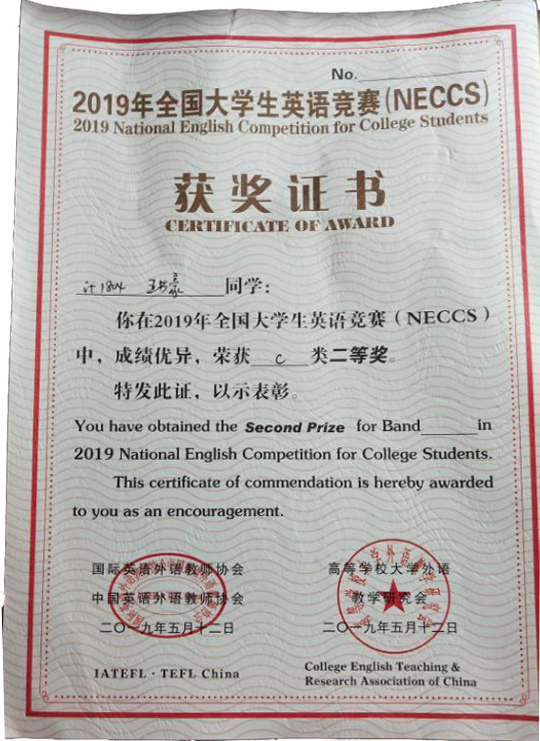 No.
2019年全国大学生英语竞赛(NECCS)
2019 National English Competition for College Students
获奖证书
CERTIFICATE OF AWARD
计1804 同学:
你在2019年全国大学生英语竞赛(NECCS)
中,成绩优异,荣获 C 类二等奖。
特发此证,以示表彰。
You have obtained the Second Prize for Band in
2019 National English Competition for College Students.
This certificate of commendation is hereby awarded
to you as an encouragement.
国际英语外语教师协会
中国英语外语教师协会
二〇一九年五月十二日
IATEFL·TEFL China
高等学校大学外语
教学研究会
二〇一九年五月十二日
College English Teaching &
Research Association of China